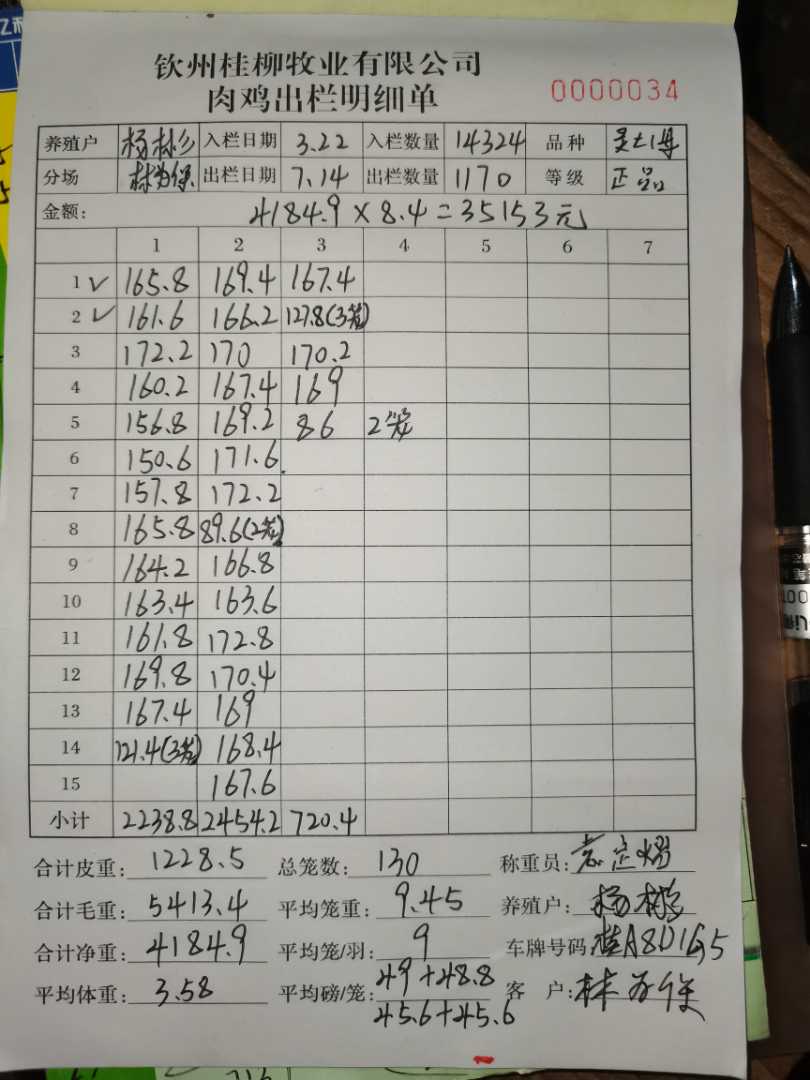 钦州桂柳牧业有限公司
肉鸡出栏明细单 0000034
养殖户 杨彬彡 入栏日期 3.22 入栏数量 14324 品种
分场 出栏日期 7.14 出栏数量 1170 等级 正品
金额: 4184.9×8.4=35153元
1 2 3 4 5 6 7
1 ✓ 165.8 169.4 167.4
2 ✓ 161.6 166.2 127.8(3笼)
3 172.2 170 170.2
4 160.2 167.4 169
5 156.8 169.2 86 2笼
6 150.6 171.6
7 157.8 172.2
8 165.8 89.6(2笼)
9 164.2 166.8
10 163.4 163.6
11 161.8 172.8
12 169.8 170.4
13 167.4 169
14 121.4(3笼) 168.4
15 167.6
小计 2238.8 2454.2 720.4
合计皮重: 1228.5 总笼数: 130 称重员:
合计毛重: 5413.4 平均笼重: 9.45 养殖户: 杨彬
合计净重: 4184.9 平均笼/羽: 9 车牌号码: 桂A8D1G5
平均体重: 3.58 平均磅/笼: 49+48.8 客 户:
45.6+45.6